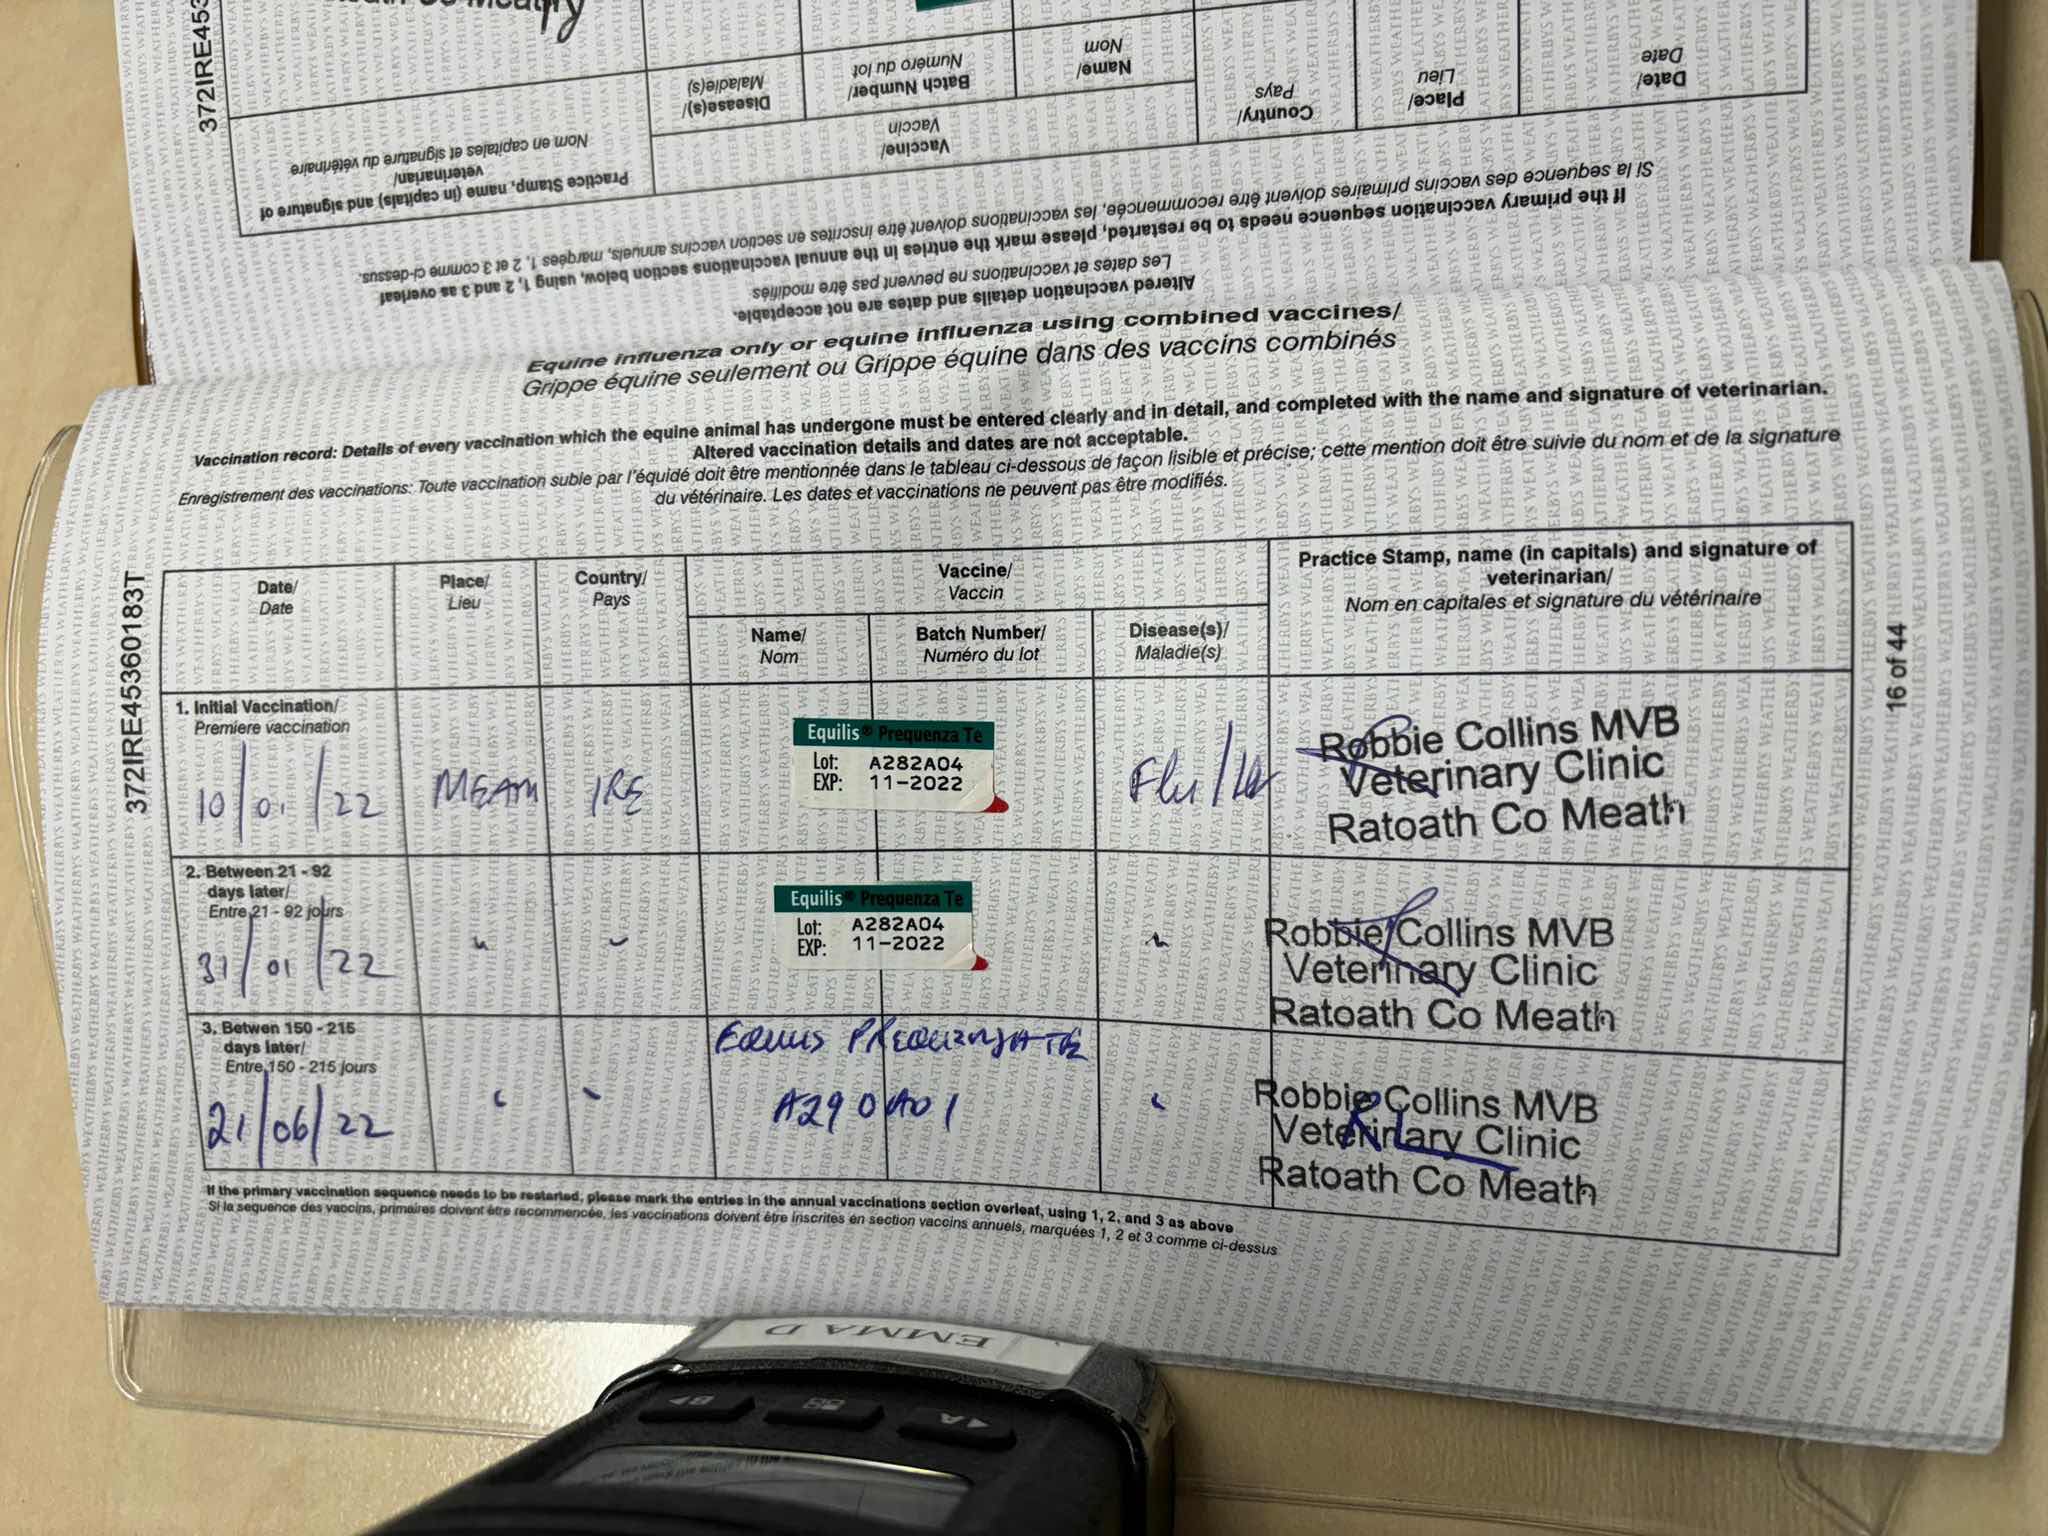 372IRE453
Date/
Date
Place/
Lieu
Country/
Pays
Vaccine/
Vaccin
Name/
Nom
Batch Number/
Numéro du lot
Disease(s)/
Maladie(s)
Practice Stamp, name (in capitals) and signature of
veterinarian/
Nom en capitales et signature du vétérinaire
If the primary vaccination sequence needs to be restarted, please mark the entries in the annual vaccinations section below, using 1, 2 and 3 as overleaf
Si la sequence des vaccins primaires doivent être recommencée, les vaccinations doivent être inscrites en section vaccins annuels, marquées 1, 2 et 3 comme ci-dessus.
Altered vaccination details and dates are not acceptable.
Les dates et vaccinations ne peuvent pas être modifiés
Equine influenza only or equine influenza using combined vaccines/
Grippe équine seulement ou Grippe équine dans des vaccins combinés
Vaccination record: Details of every vaccination which the equine animal has undergone must be entered clearly and in detail, and completed with the name and signature of veterinarian.
Altered vaccination details and dates are not acceptable.
Enregistrement des vaccinations: Toute vaccination suble par l'équidé doit être mentionnée dans le tableau ci-dessous de façon lisible et précise; cette mention doit être suivie du nom et de la signature
du vétérinaire. Les dates et vaccinations ne peuvent pas être modifiés.
372IRE45360183T
16 of 44
Date/
Date
Place/
Lieu
Country/
Pays
Vaccine/
Vaccin
Name/
Nom
Batch Number/
Numéro du lot
Disease(s)/
Maladie(s)
Practice Stamp, name (in capitals) and signature of
veterinarian/
Nom en capitales et signature du vétérinaire
1. Initial Vaccination/
Premiere vaccination
10/01/22
MEATH
IRE
Equilis® Prequenza Te
Lot: A282A04
EXP: 11-2022
Flu/
Robbie Collins MVB
Veterinary Clinic
Ratoath Co Meath
2. Between 21 - 92
days later/
Entre 21 - 92 jours
31/01/22
Equilis® Prequenza Te
Lot: A282A04
EXP: 11-2022
Robbie Collins MVB
Veterinary Clinic
Ratoath Co Meath
3. Betwen 150 - 215
days later/
Entre 150 - 215 jours
21/06/22
EQUILIS PREQUENZA TE
A290A01
Robbie Collins MVB
Veterinary Clinic
Ratoath Co Meath
If the primary vaccination sequence needs to be restarted, please mark the entries in the annual vaccinations section overleaf, using 1, 2, and 3 as above
Si la sequence des vaccins, primaires doivent être recommencée, les vaccinations doivent être inscrites en section vaccins annuels, marquées 1, 2 et 3 comme ci-dessus
EMMA D